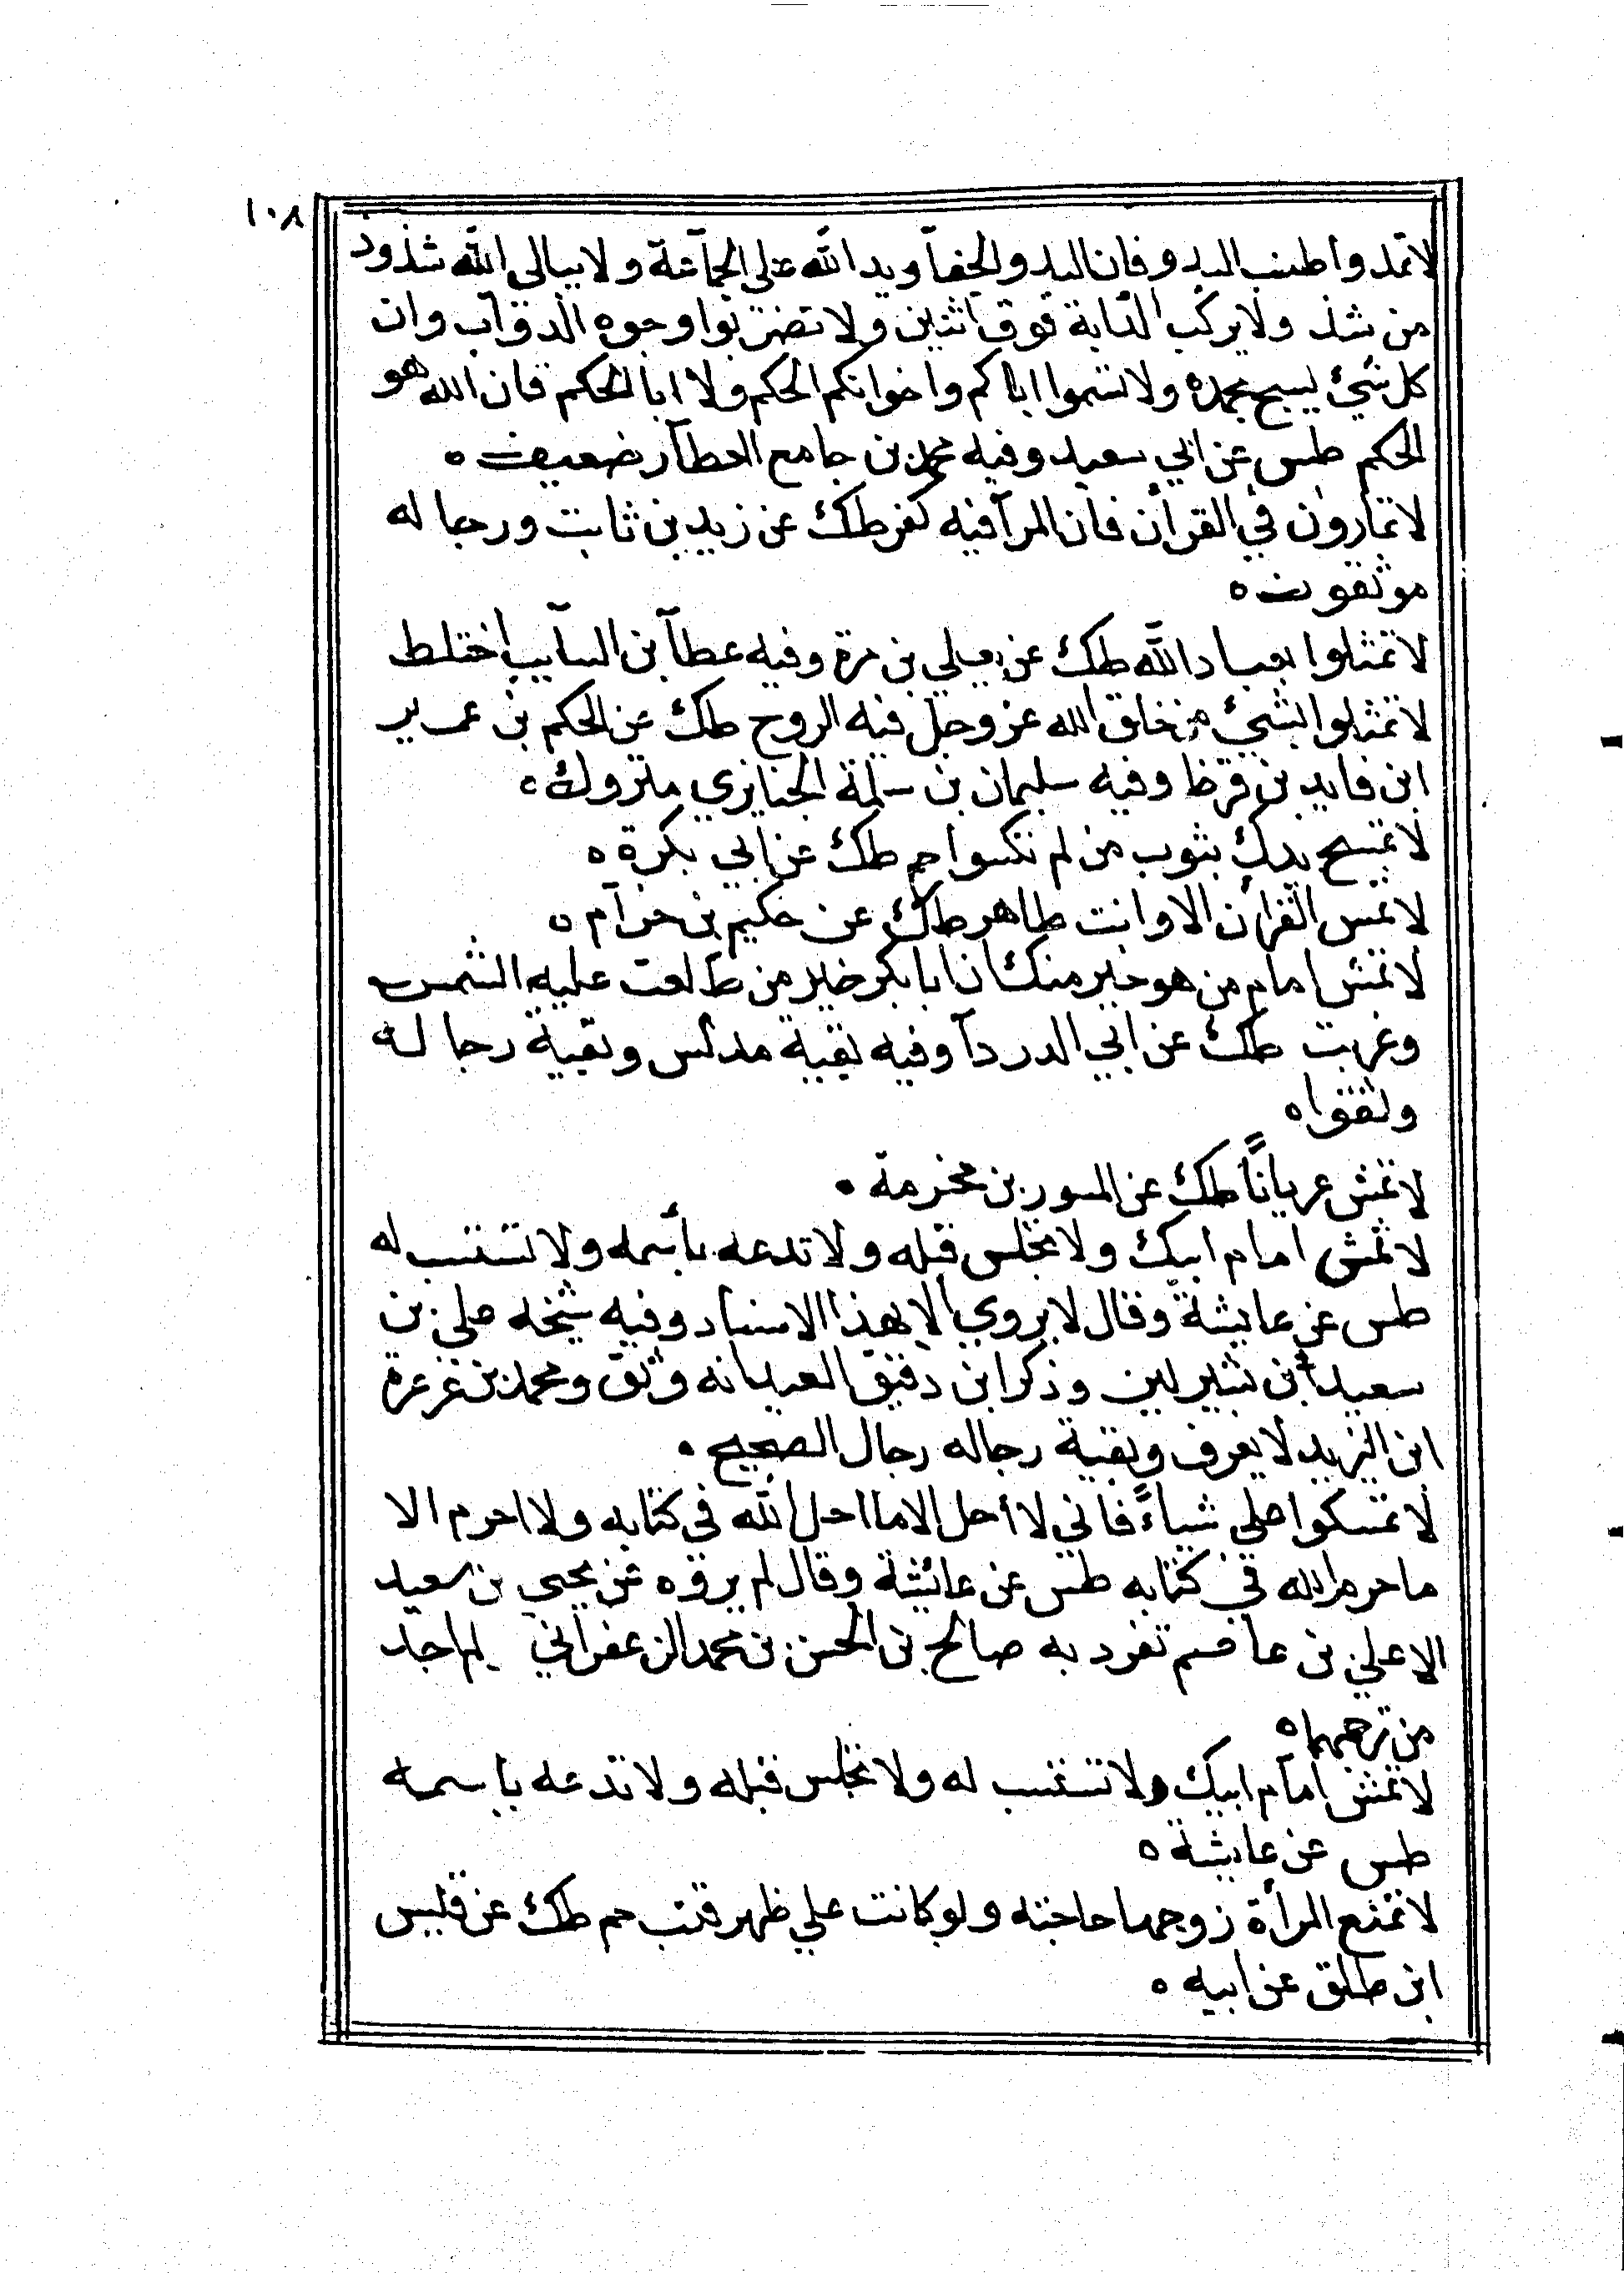 ١٠٨
لا تمدوا طنب البدو فان البدو الجفآ ويد الله على الجمآعة ولا يبالى الله شذوذ
من شذ ولا يركب الدابة فوق اثنين ولا تضربوا وجوه الدوآب وان
كل شئ يسبح بحمده ولا تسموا اباكم واخوانكم الحكم ولا ابا الحكم فان الله هو
الحكم طس عن ابي سعيد وفيه محمد بن جامع العطآر ضعيف ه
لا تمارون في القرآن فان المرآ فيه كفر طك عن زيد بن ثابت ورجاله
موثقون ه
لا تمثلوا بعباد الله طك عن يعلي بن مرة وفيه عطآ بن السآيب اختلط
لا تمثلوا بشئ من خلق الله عز وجل فيه الروح طك عن الحكم بن عمير
ابن فايد بن قرظ وفيه سليمان بن سلمة الخبايري متروك ه
لا تمسح يدك بثوب من لم تكسوا حم طك عن ابي بكرة ه
لا تمس القرآن الا وانت طاهر طك عن حكيم بن حزآم ه
لا تمش امام من هو خير منك ان ابا بكر خير من طلعت عليه الشمس
وغربت طك عن ابي الدردآ وفيه بقية مدلس وبقية رجاله
وثقوا ه
لا تمش عرياناً طك عن المسور بن مخرمة ه
لا تمش امام ابيك ولا تجلس قبله ولا تدعه بأسمه ولا تستسب له
طس عن عايشة وقال لا يروي الا بهذا الاسناد وفيه شيخه علي بن
سعيد أبن بشير لين وذكر ابن دقيق العيد انه وثق ومحمد بن عرعرة
ابن اليزيد لا يعرف وبقية رجاله رجال الصحيح ه
لا تمسكوا علي شياءً فاني لا أحل الا ما احل الله في كتابه ولا احرم الا
ما حرم الله في كتابه طس عن عائشة وقال لم يروه عن يحيي بن سعيد
الا علي بن عاصم تفرد به صالح بن الحسن بن محمد الزعفراني لم اجد
من ترجمهما ه
لا تمش امآم ابيك ولا تستسب له ولا تجلس قبله ولا تدعه باسمه
طس عن عايشة ه
لا تمنع المرأة زوجها حاجته ولو كانت علي ظهر قتب حم طك عن قيس
ابن طلق عن ابيه ه